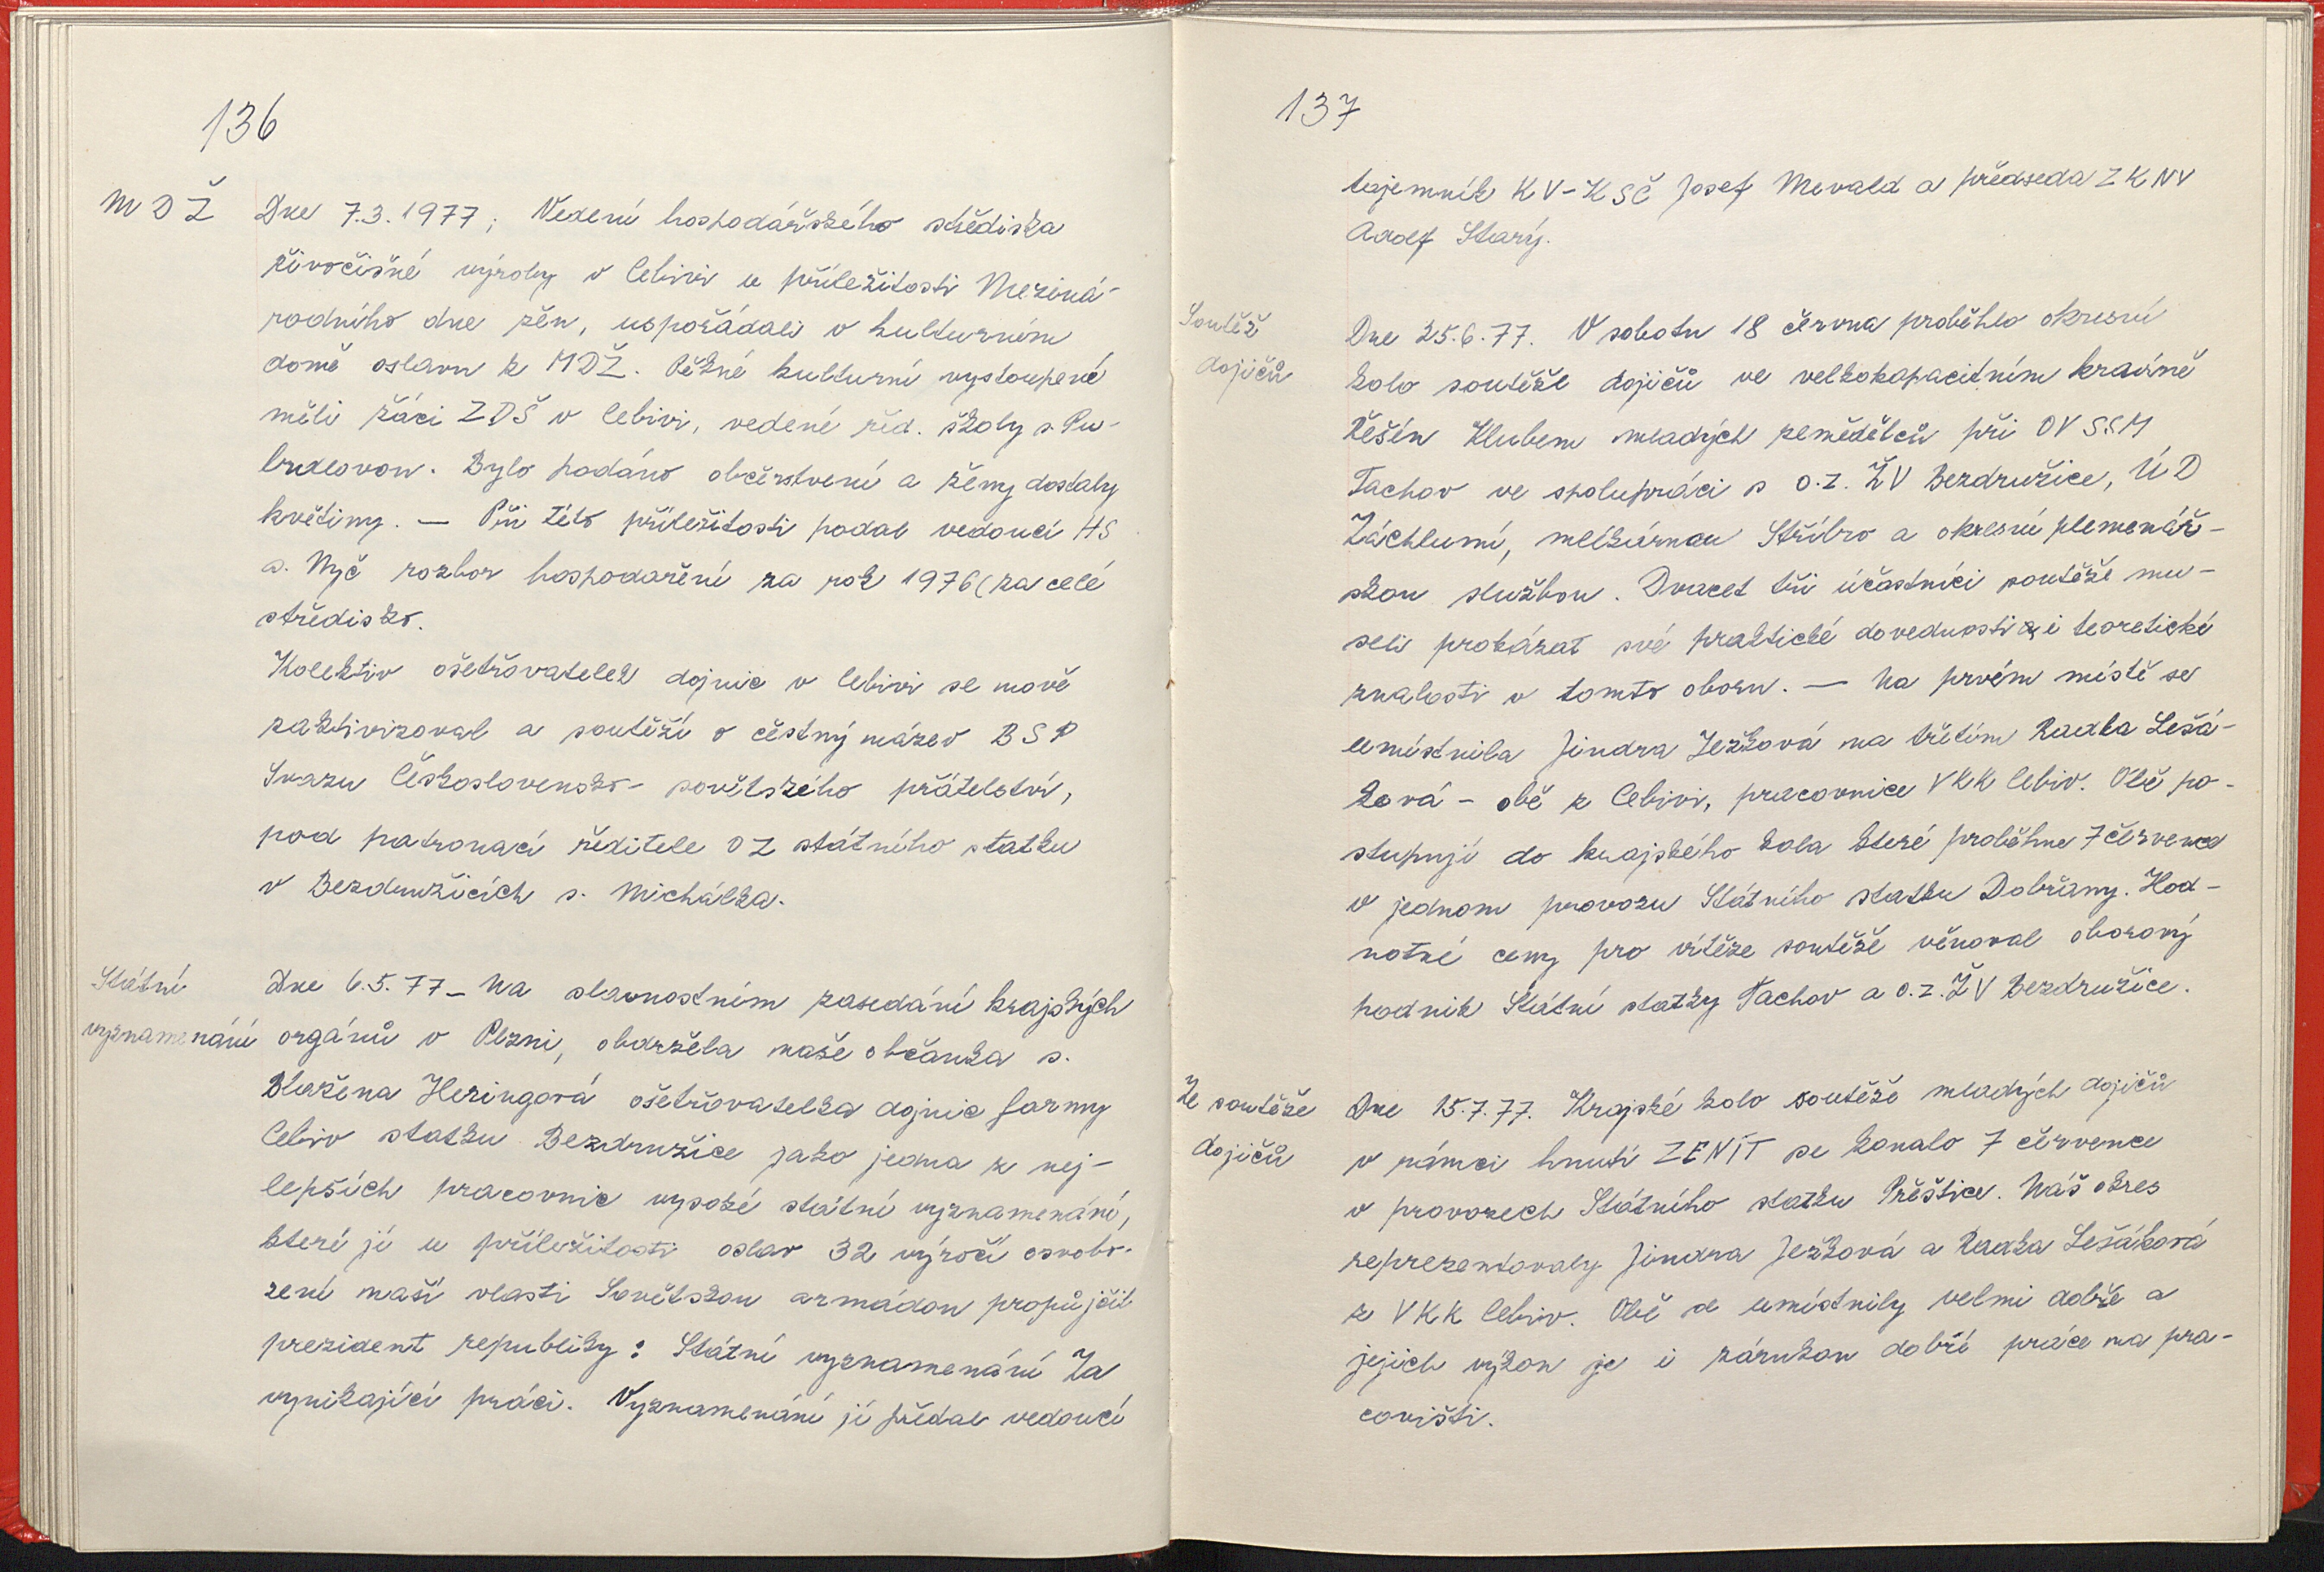 136
MDŽ
Dne 7.3.1977; Vedení hospodářského střediska
živočišné výroby v Cebivi u příležitosti Meziná-
rodního dne žen, uspořádali v kulturním
domě oslavu k MDŽ. Pěkné kulturní vystoupené
měli žáci ZDŠ v Cebivi, vedené řed. školy s.
Bylo podáno občerstvení a ženy dostaly
květiny. — Při této příležitosti podal vedoucí HS
s. Nyč rozbor hospodaření za rok 1976 (za celé
středisko.
Kolektiv ošetřovatelek dojnic v Cebivi se nově
zaktivizoval a soutěží o čestný název BSP
Svazu Československo-sovětského přátelství,
pod patronací ředitele OZ státního statku
v Bezdružicích s. Michálka.
Státní
vyznamenání
Dne 6.5.77 – Na slavnostním zasedání krajských
orgánů v Plzni, obdržela naše občanka s.
Blažena Heringová ošetřovatelka dojnic farmy
Cebiv statku Bezdružice jako jedna z nej-
lepších pracovnic vysoké státní vyznamenání,
které jí u příležitosti oslav 32 výročí osvobo-
zení naší vlasti Sovětskou armádou propůjčil
prezident republiky: Státní vyznamenání Za
vynikající práci. Vyznamenání jí předal vedoucí
137
tajemník KV-KSČ Josef Mevald a předseda ZKNV
Adolf Starý.
Soutěž
dojičů
Dne 25.6.77. V sobotu 18 června proběhlo okresní
kolo soutěže dojičů ve velkokapacitním kravíně
Řešín Klubem mladých zemědělců při OV SSM
Tachov ve spolupráci s o.z. ŽV Bezdružice, ÚD
Záchlumí, mlékárnou Stříbro a okresní plemenář-
skou službou. Dvacet tři účastníci soutěže mu-
seli prokázat své praktické dovednosti i teoretické
znalosti v tomto oboru. — Na prvém místě se
umístnila Jindra Ježková na třetím Radka Lešá-
ková – obě z Cebivi, pracovnice VKK Cebiv. Obě po-
stupují do krajského kola které proběhne 7 července
v jednom provozu Státního statku Dobřany. Hod-
notné ceny pro vítěze soutěže věnoval oborový
podnik Státní statky Tachov a o.z. ŽV Bezdružice.
Ze soutěže
dojičů
Dne 15.7.77. Krajské kolo soutěže mladých dojičů
v rámci hnutí ZENIT se konalo 7 července
v provozech Státního statku Přeštice. Náš okres
reprezentovaly Jindra Ježková a Radka Lešáková
z VKK Cebiv. Obě se umístnily velmi dobře a
jejich výkon je i zárukou dobré práce na pra-
covišti.